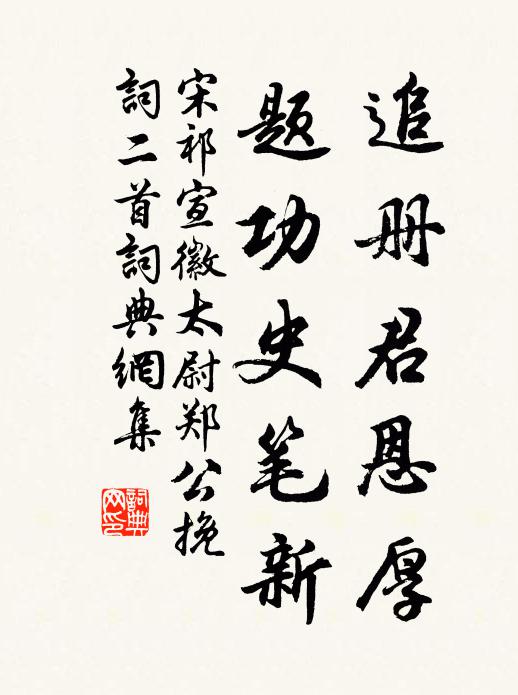 追册君恩厚
题功史笔新
宋祁宣徽太尉郑公挽
詞二首詞典網集
詞典网印